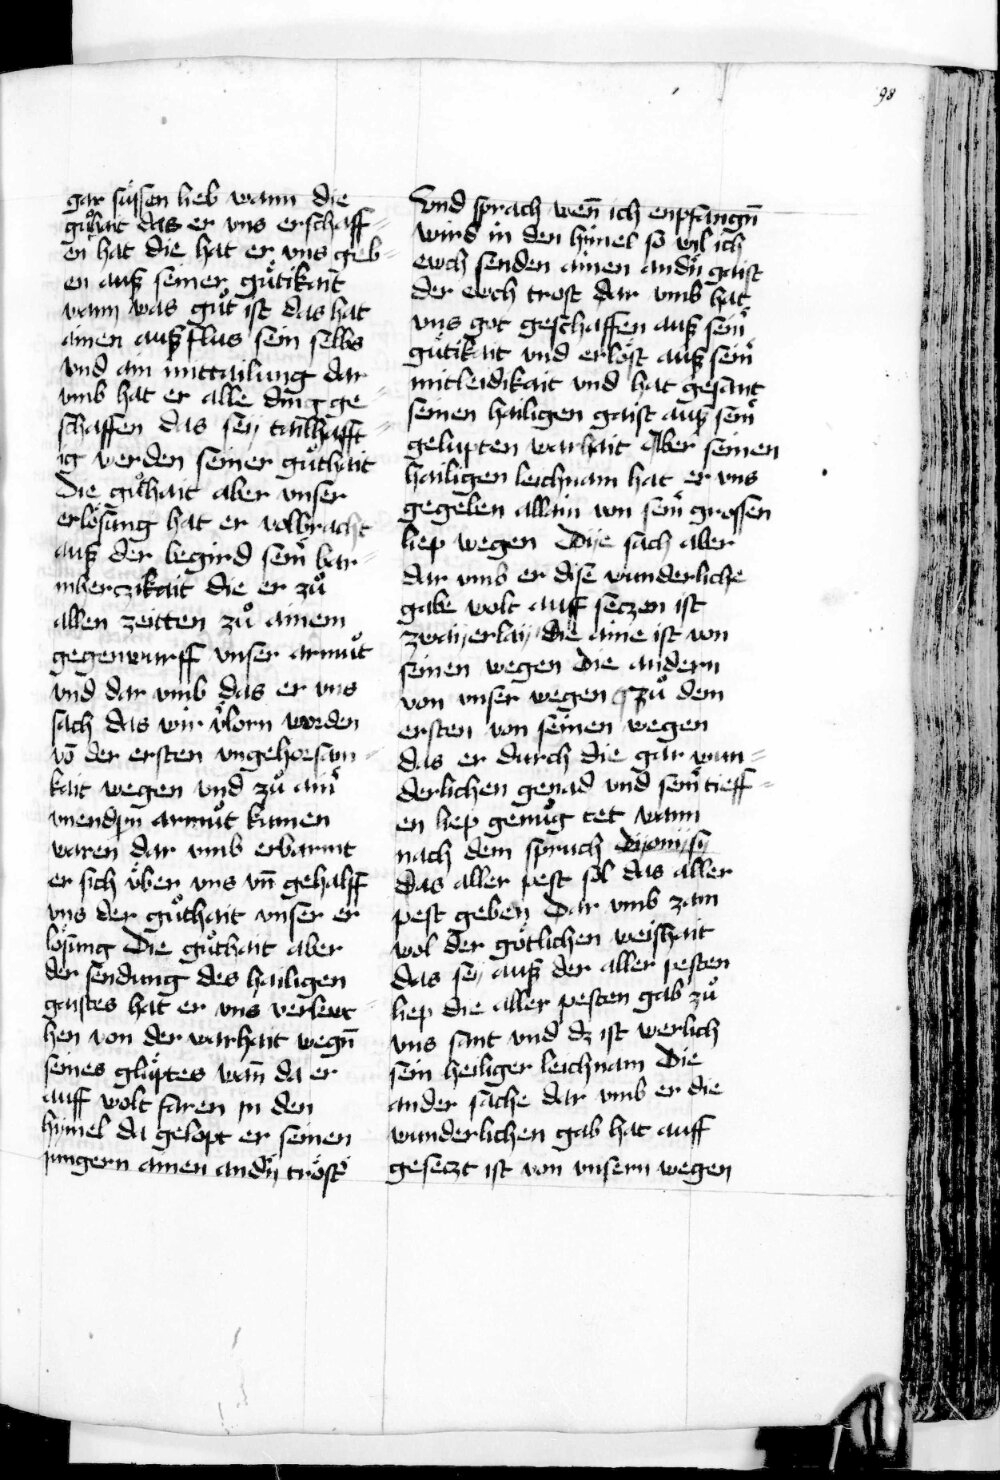 98
gar süssen lieb wann die
gůthait das er vns erschaff=
en hat die hat er vns geb=
en auß seiner gütikait
wann was gůt ist das hat
ainen außflus sein selbs
vnd ain mittailung dar
vmb hat er alle ding ge=
schaffen das sey tailhafft=
ig werden seiner gůthait
Die gůthait aber vnser
erlösung hat er volbracht
auß der begird seinͤ bar=
mherczikait die er zů
allen zeitten zů ainem
gegenwurff vnser armůt
vnd dar vmb das er vns
sach das wir vͤlorn worden
võ der ersten vngehorsam=
kait wegen vnd zů ainͤ
vnendpñ armůt kumen
waren dar vmb erbarmt
er sich über vns vñ gehalff
vns der gůthait vnser er
lösung Die gůthait aber
der sendung des hailigen
gaistes hat er vns verlewt=
hen von der warhait wegñ
seines glüptes wañ da er
auff wolt faren jn den
himel da gelopt er seinen
jungern ainen andͤn tröstͤ
Vnd sprach weñ ich enpfangñ
wird in den himel so wil ich
ewch senden ainen andͤn gaist
der ewch trost dar vmb hat
vns got geschaffen auß seinͤ
gütikait vnd erlöst auß seinͤ
mitleidikait vnd hat gesant
seinen hailigen gaist auß seinͤ
gelupten warhait Aber seinen
hailigen leichnam hat er vns
gegeben allain von seinͤ grossen
liep wegen Dye sach aber
dar vmb er dise wunderliche
gabe wolt auff seczen ist
zwayerlay die aine ist von
seinen wegen die andern
von vnser wegen ¶ Zů dem
ersten von seinen wegen
das er durch die gar wun=
derlichen genad vnd seinͤ tieff=
en liep genůg tet wann
nach dem spruch Dyonisy
Das aller pest sol das aller
pest geben Dar vmb zam
wol der götlichen weishait
das sey auß der aller pesten
liep die aller pesten gab zů
vns sant vnd dz ist werlich
sein heiliger leichnam Die
ander sache dar vmb er die
wunderlichen gab hat auff
gesetzt ist von vnsern wegen